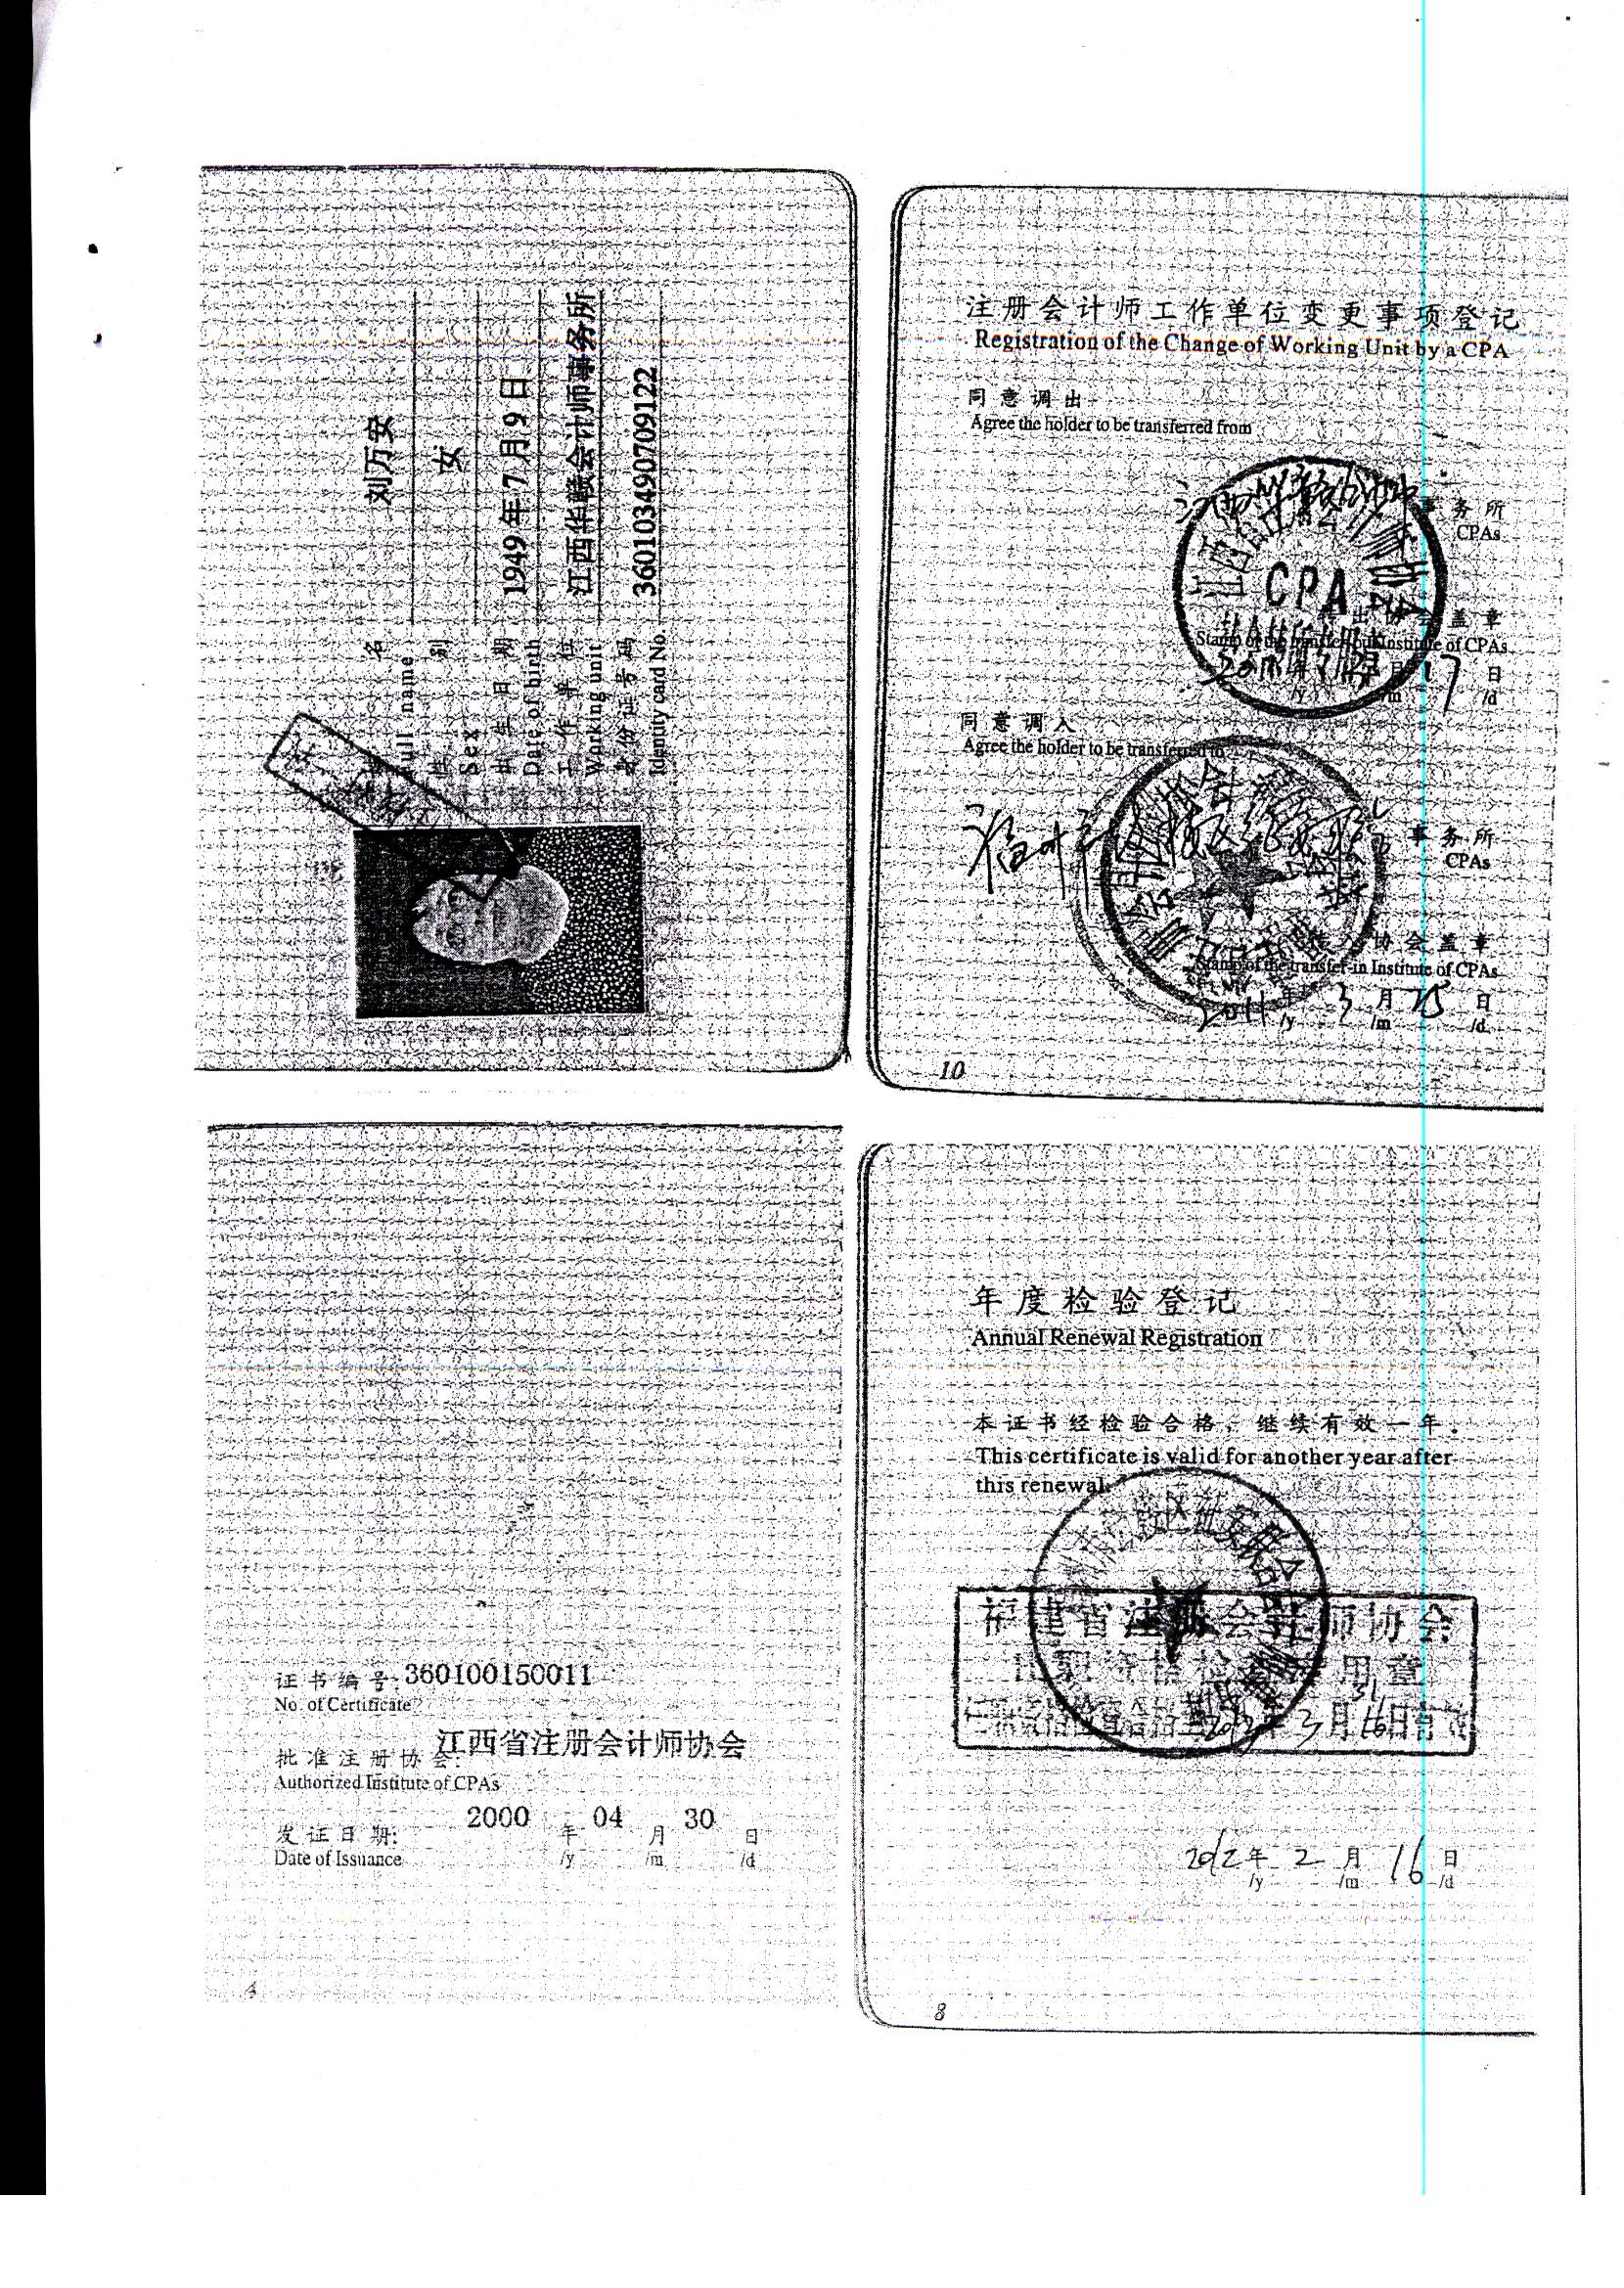 姓 名 刘万安
Full name
性 别 女
Sex
出 生 日 期 1949年7月9日
Date of birth
工 作 单 位 江西华赣会计师事务所
Working unit
身 份 证 号 码 360103490709122
Identity card No
注册会计师工作单位变更事项登记
Registration of the Change of Working Unit by a CPA
同 意 调 出
Agree the holder to be transferred from
事 务 所
CPAs
CPA
协 会 盖 章
Stamp of the transfer-out Institute of CPAs
月 17 日
/y /m /d
同 意 调 入
Agree the holder to be transferred to
事 务 所
CPAs
协 会 盖 章
Stamp of the transfer-in Institute of CPAs
2011 年 3 月 25 日
/y /m /d
10
证 书 编 号: 360100150011
No. of Certificate
批 准 注 册 协 会: 江西省注册会计师协会
Authorized Institute of CPAs
发 证 日 期: 2000 年 04 月 30 日
Date of Issuance /y /m /d
4
年 度 检 验 登 记
Annual Renewal Registration
本 证 书 经 检 验 合 格, 继 续 有 效 一 年.
This certificate is valid for another year after
this renewal.
福建省注册会计师协会
用章
3月16日
2012 年 2 月 16 日
/y /m /d
8